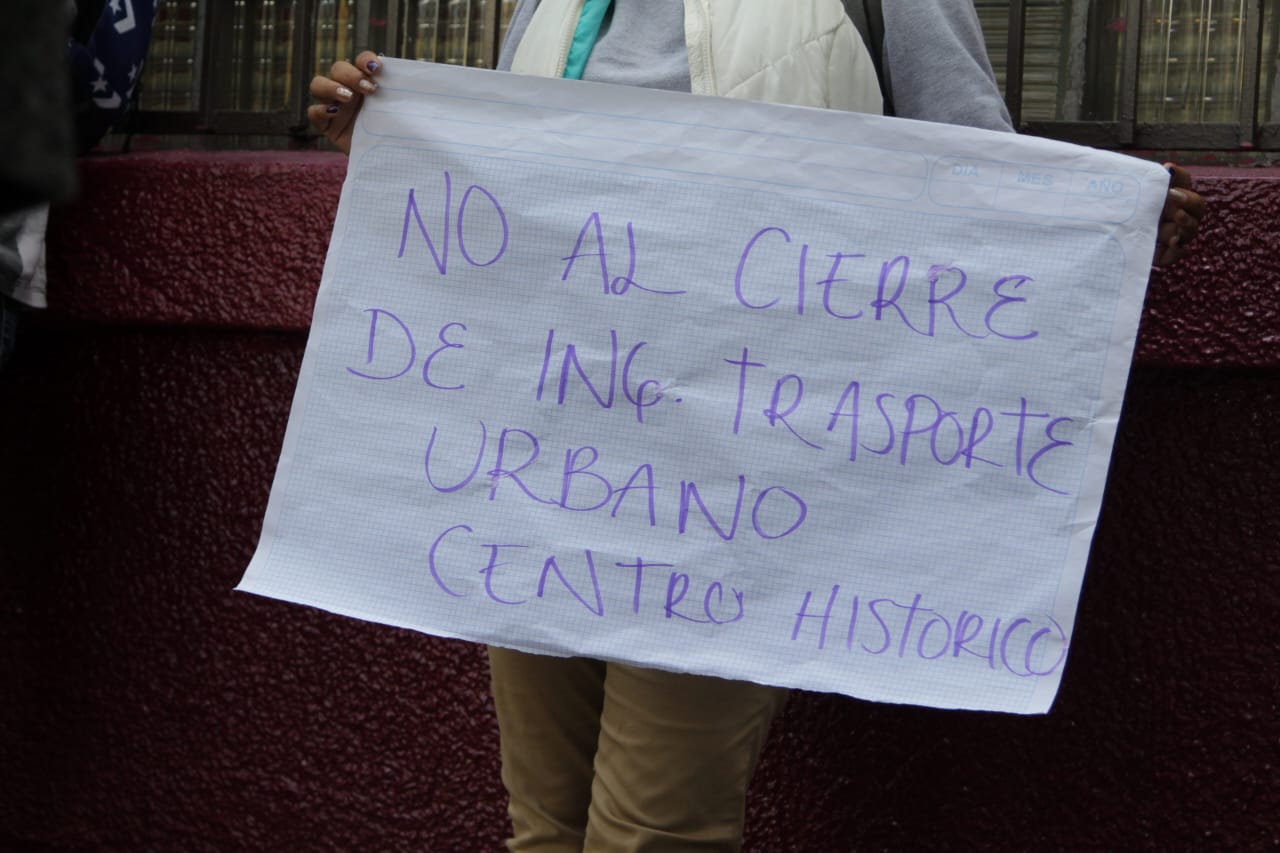 DIA MES AÑO
NO AL CIERRE
DE ING. TRASPORTE
URBANO
CENTRO HISTORICO